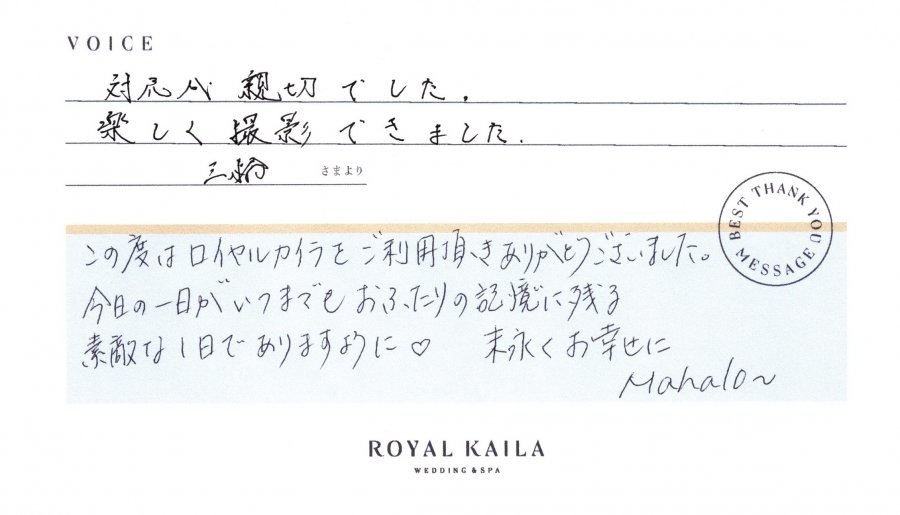 VOICE
対応が親切でした。
楽しく撮影できました。
三輪 さまより
BEST THANK YOU MESSAGE
この度はロイヤルカイラをご利用頂きありがとうございました。
今日の一日がいつまでもおふたりの記憶に残る
素敵な1日でありますように♡ 末永くお幸せに
Mahalo～
ROYAL KAILA
WEDDING & SPA